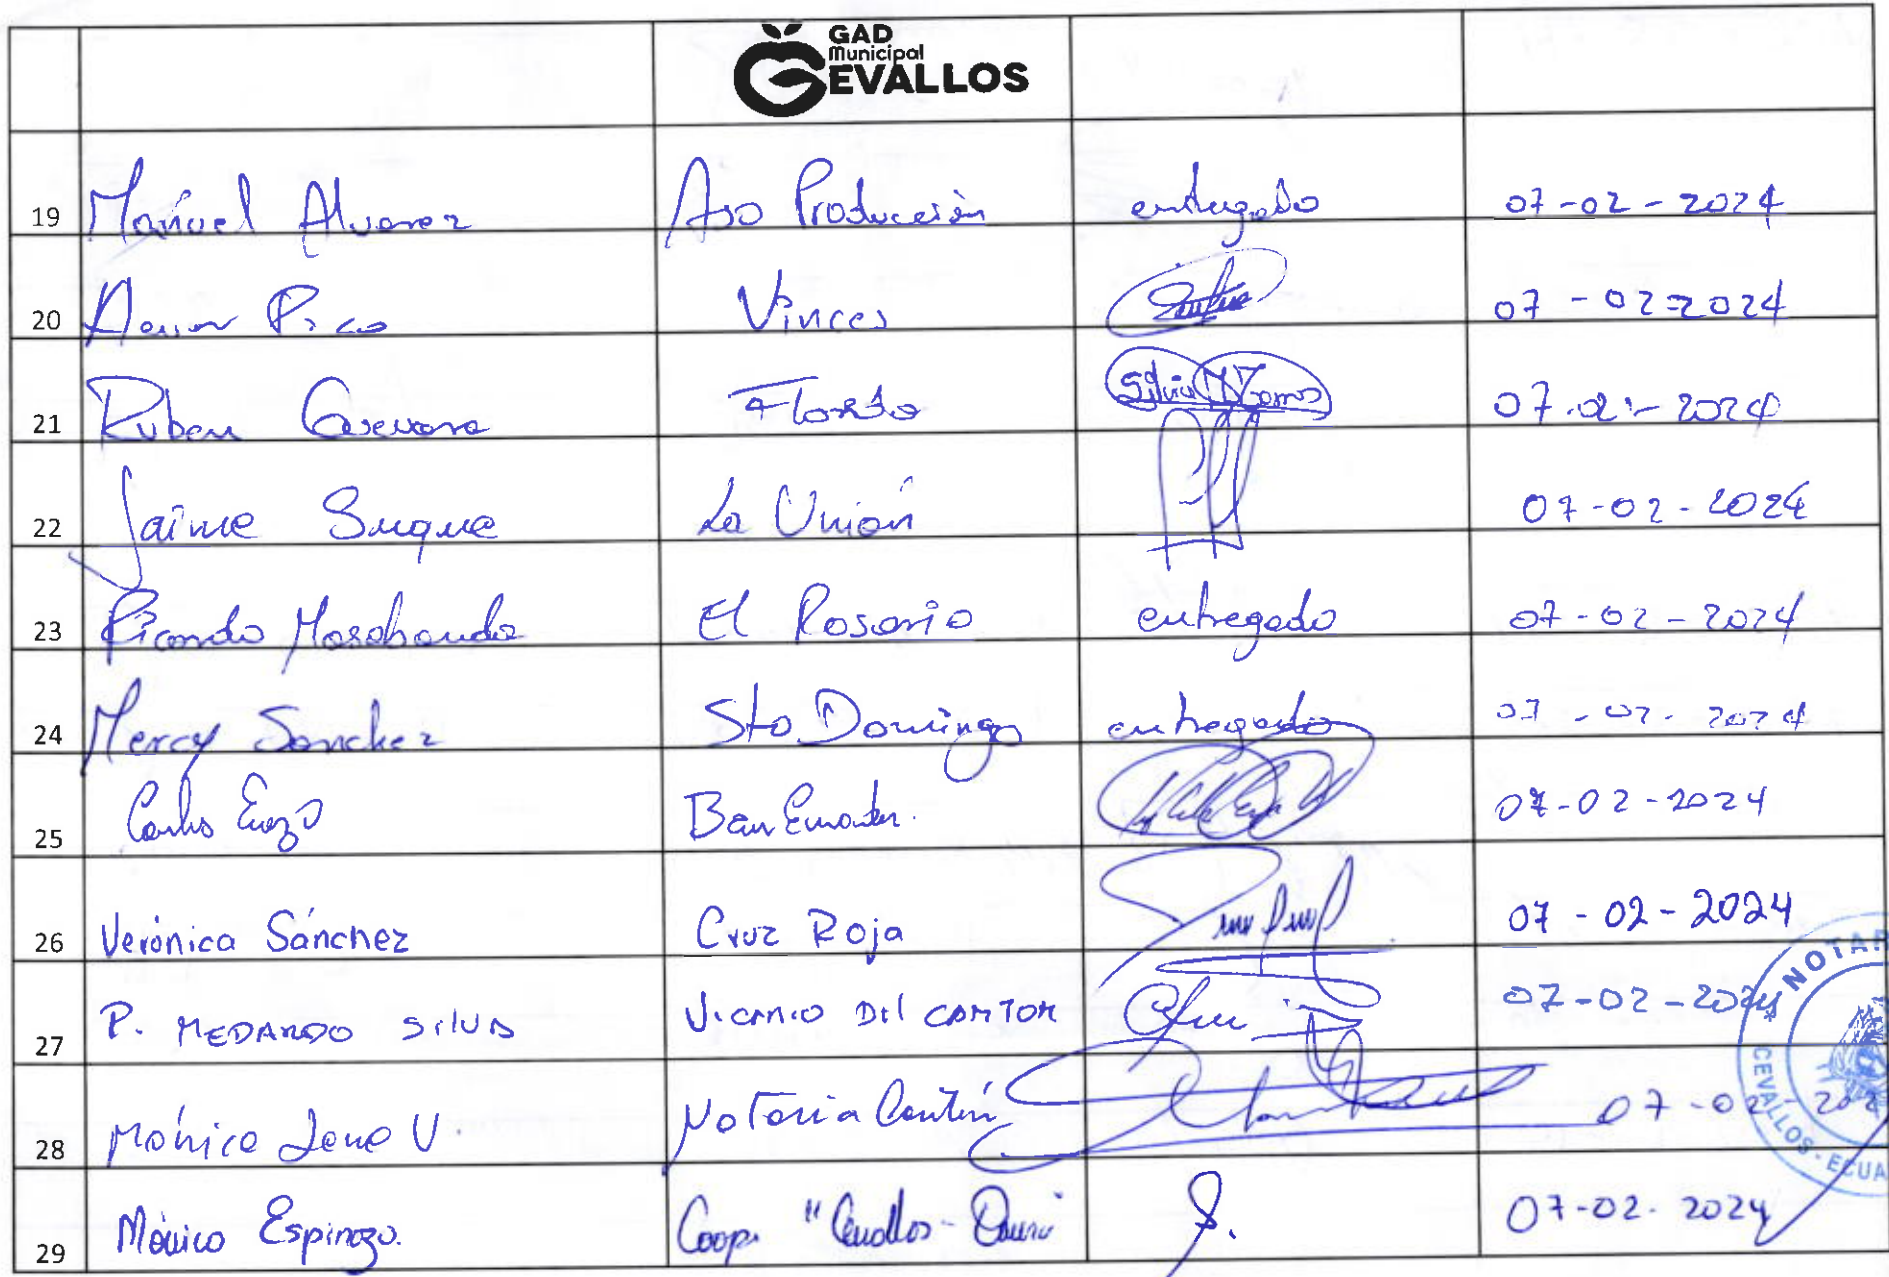 GAD
Municipal
CEVALLOS
19 Manuel Alvarez Aso Producción entregado 07-02-2024
20 Pico Vinces 07-02-2024
21 Ruben Guevara Florida Silvia 07-02-2024
22 Jaime Suque La Unión 07-02-2024
23 Ricardo Masabanda El Rosario entregado 07-02-2024
24 Mercy Sanchez Sto Domingo entregado 07-02-2024
25 Carlos Erazo Ban 07-02-2024
26 Verónica Sánchez Cruz Roja 07-02-2024
27 P. MEDARDO SILVA VICARIO DEL CANTON 07-02-2024
28 Mónica V. Notaria 07-02-
29 Mónica Espinoza. Coop. "Cevallos- 07-02-2024
NOTAR
CEVALLOS - ECUA